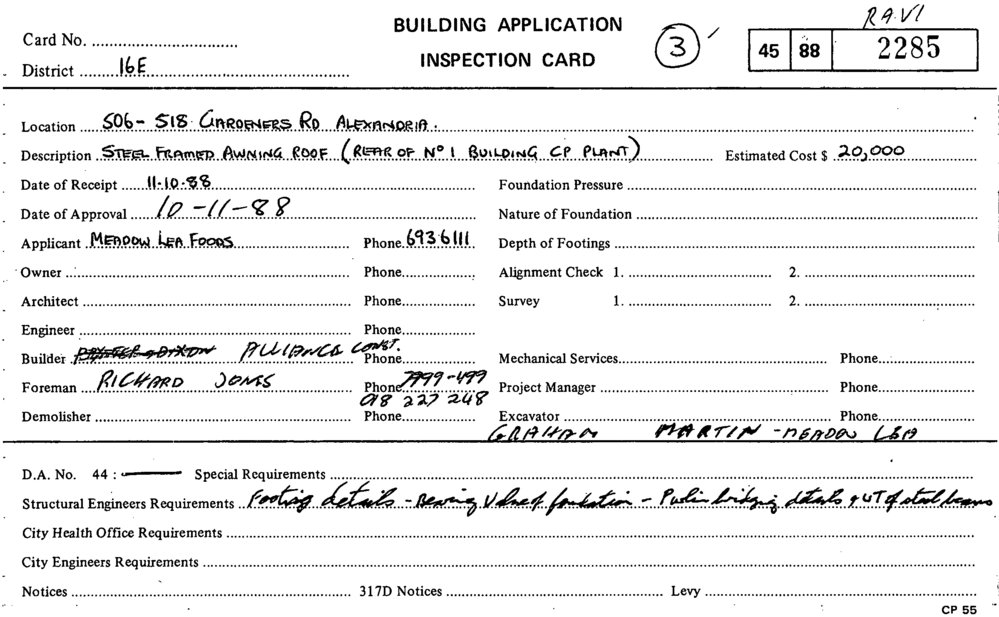 RAVI
BUILDING APPLICATION
INSPECTION CARD
3
45 88 2285
Card No.
District 16E
Location 506-518 GARDENERS RD ALEXANDRIA.
Description STEEL FRAMED AWNING ROOF (REAR OF Nº 1 BUILDING CP PLANT) Estimated Cost $ 20,000
Date of Receipt 11-10-88 Foundation Pressure
Date of Approval 10-11-88 Nature of Foundation
Applicant MEADOW LEA FOODS Phone 693 6111 Depth of Footings
Owner Phone Alignment Check 1. 2.
Architect Phone Survey 1. 2.
Engineer Phone
Builder ALLIANCE CONST. Phone Mechanical Services Phone
Foreman RICHARD JONES Phone Project Manager Phone
018 227 248
Demolisher Phone Excavator Phone
GRAHAM MARTIN - MEADOW LEA
D.A. No. 44 : Special Requirements
Structural Engineers Requirements Footing details - Bearing Value of foundation - Purlin bridging details & WT of steel beams
City Health Office Requirements
City Engineers Requirements
Notices 317D Notices Levy
CP 55